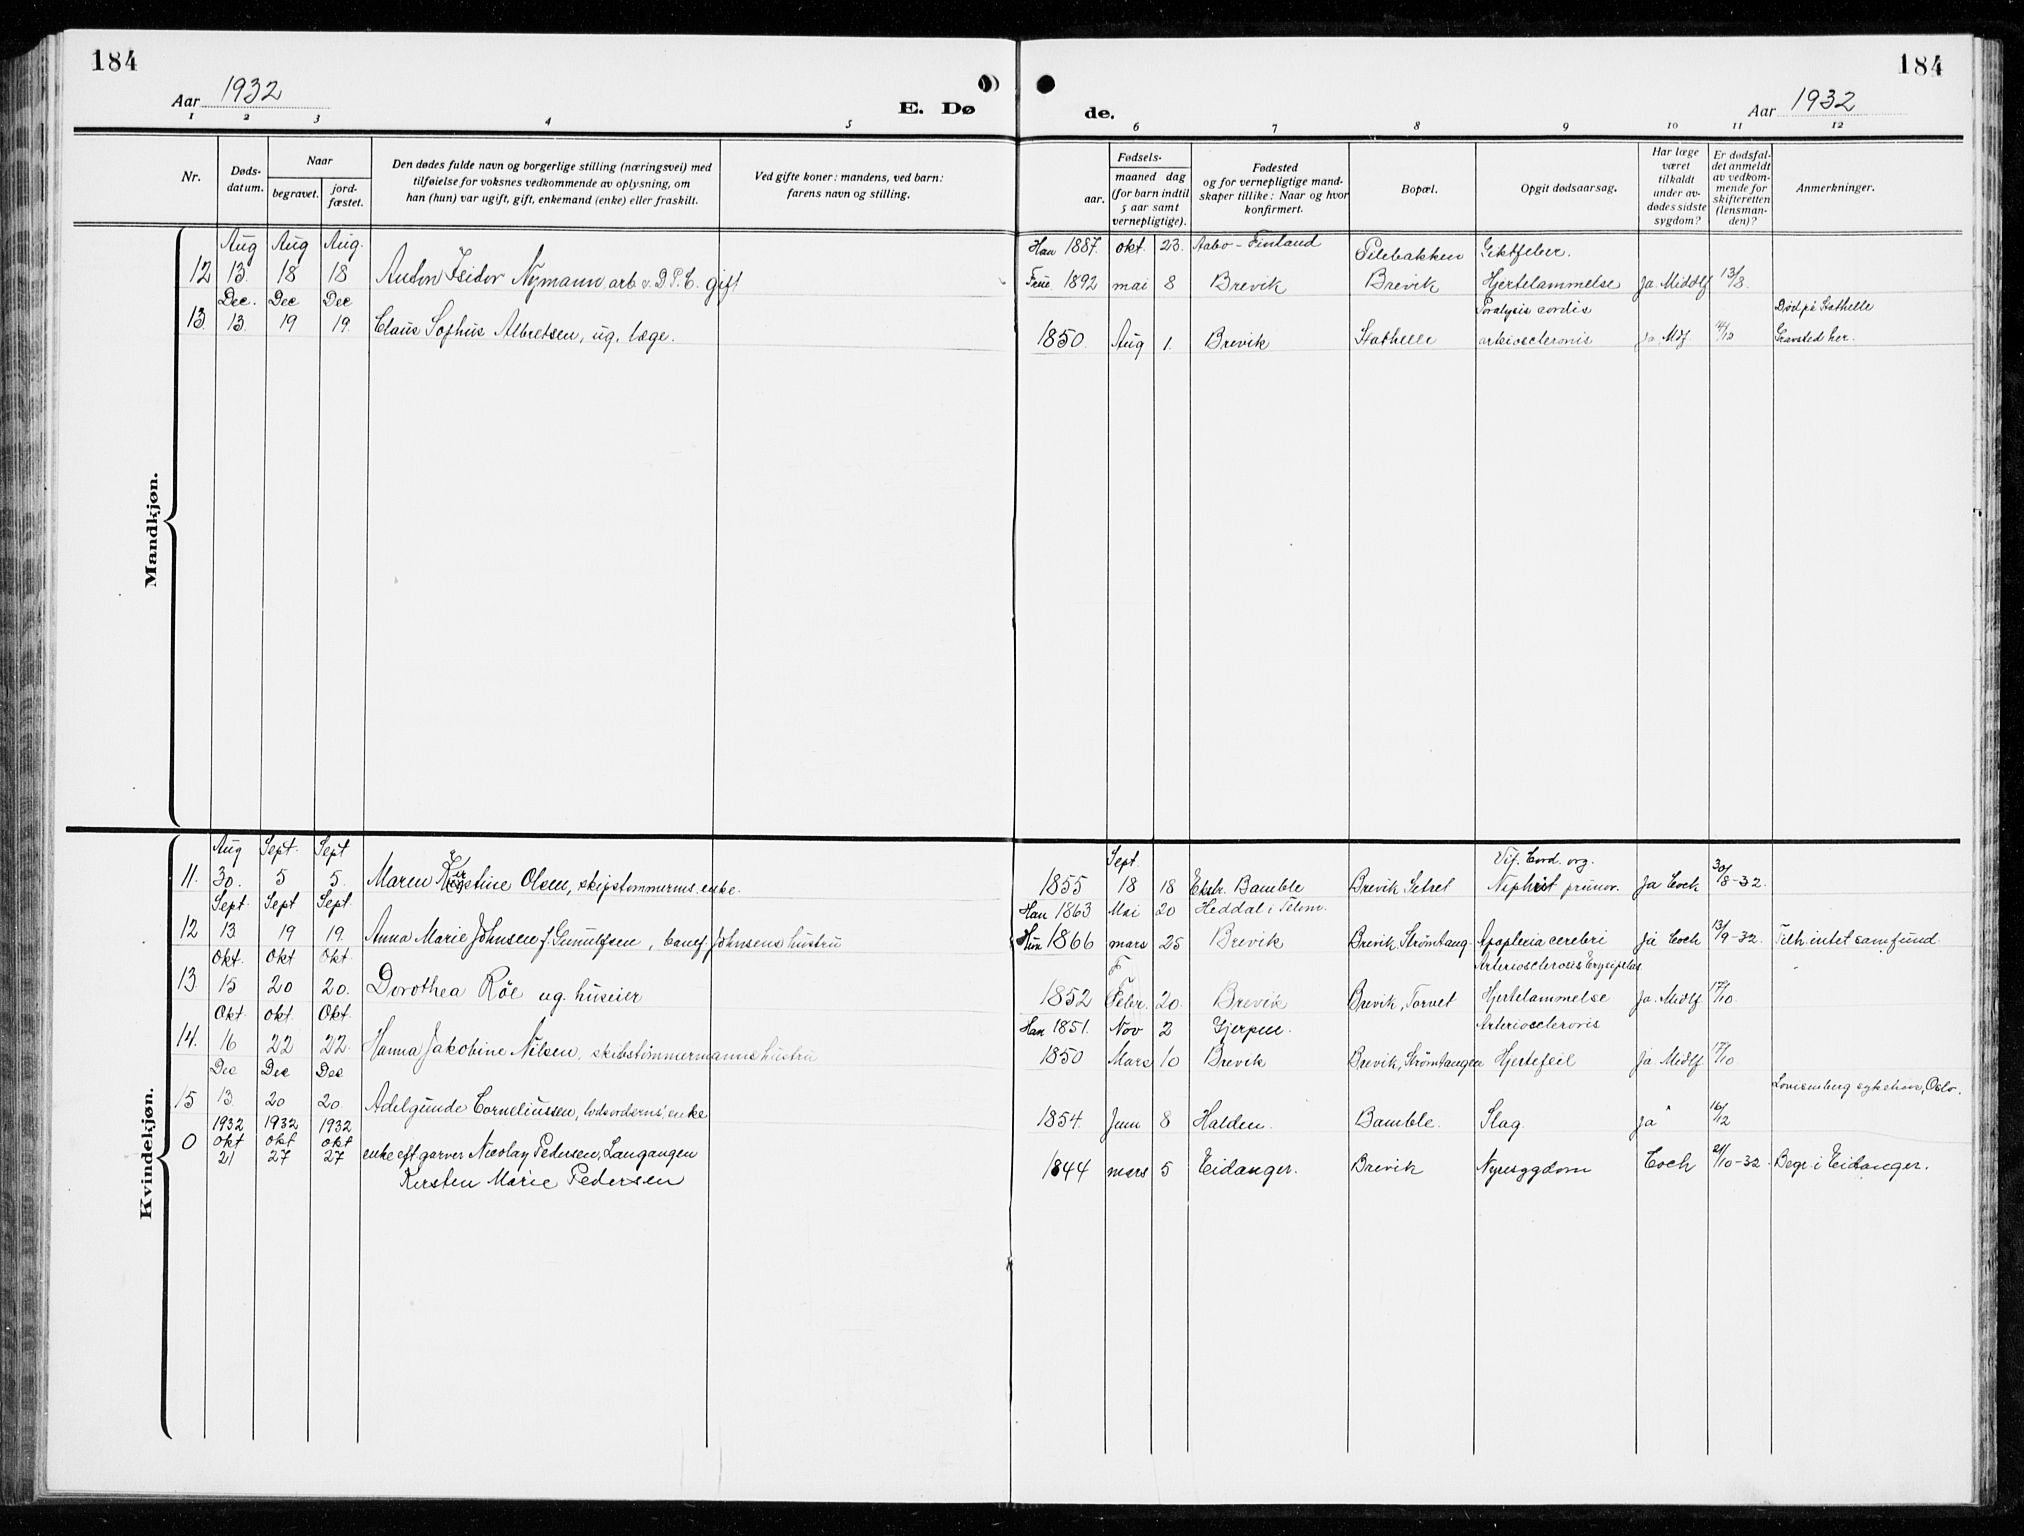 184
184
Aar 1932
E. Dø
de.
Aar 1932
1 2 3 4 5 6 7 8 9 10 11 12
Nr.
Døds-
datum.
Naar
begravet.
jord-
fæstet.
Den dødes fulde navn og borgerlige stilling (næringsvei) med
tilføielse for voksnes vedkommende av oplysning, om
han (hun) var ugift, gift, enkemand (enke) eller fraskilt.
Ved gifte koner: mandens, ved barn:
farens navn og stilling.
Fødsels-
aar.
maaned dag
(for barn indtil
5 aar samt
vernepligtige).
Fødested
og for vernepligtige mand-
skaper tillike: Naar og hvor
konfirmert.
Bopæl.
Opgit dødsaarsag.
Har læge
været
tilkaldt
under av-
dødes sidste
sygdom?
Er dødsfal-
det anmeldt
av vedkom-
mende for
skifteretten
(lensman-
den)?
Anmerkninger.
Mandkjøn.
Aug Aug Aug. Han 1887. okt. 23. Aabo - Finland Pilebakken Giktfeber.
12 13. 18 18 Anton Isidor Nymann, arb. v. D.P.C. gift Frue 1892 mai 8 Brevik Brevik Hjertelammelse Ja. Middlf 13/8.
Dec. Dec Dec Paralysis cordis Død på Stathelle
13. 13. 19 19. Claus Sophus Albretsen, ug. læge. 1850. Aug 1. Brevik Stathelle arteriosclerosis Ja. Mdf. 14/12 Gravsted her.
Kvindekjøn.
Aug Sept. Sept Sept. Vit. Cord. org.
11. 30. 5 5. Maren Kirstine Olsen, skipstømmerms. enke. 1855 18 18 Ekstr. Bamble Brevik, Setret Nephrit Ja Coch 30/8-32.
Sept. Sept Sept. Han 1863 Mai 20 Heddal i Telem.
12 13. 19 19. Anna Marie Johnsen f. Gunulfsen, Johnsens hustru Hun 1866 mars 25 Brevik Brevik, Strømtang. Apoplexia cerebri Ja Coch 13/9-32. Tilh. intet samfund
Okt. Okt Okt. F Arteriosclerosis Erysipelas
13. 15 20 20. Dorothea Röe ug. huseier 1852 Febr. 20. Brevik Brevik, Torvet Hjertelammelse Ja. Midlf 17/10.
Okt okt. Okt. Han 1851. Nov 2 Gjerpen. Arteriosclerosis
14. 16 22 22. Hanna Jakobine Nilsen, skibstømmermanns hustru 1850 Mars 10 Brevik Brevik, Strømtangen Hjertefeil Ja Midlf 17/10
Dec Dec Dec Lovisenberg sykehus, Oslo.
15 13. 20 20. Adelgunde Corneliussen, lodsolderms' enke 1854. Juni 8 Halden. Bamble. Slag Ja 16/12
1932 1932 1932
0 okt 21 okt 27 okt 27 enke eft garver Nicolay Pedersen, Langangen 1844 mars 5 Eidanger. Brevik Nyresygdom Coch 21/10-32. Begr. i Eidanger.
Kirsten Marie Pedersen